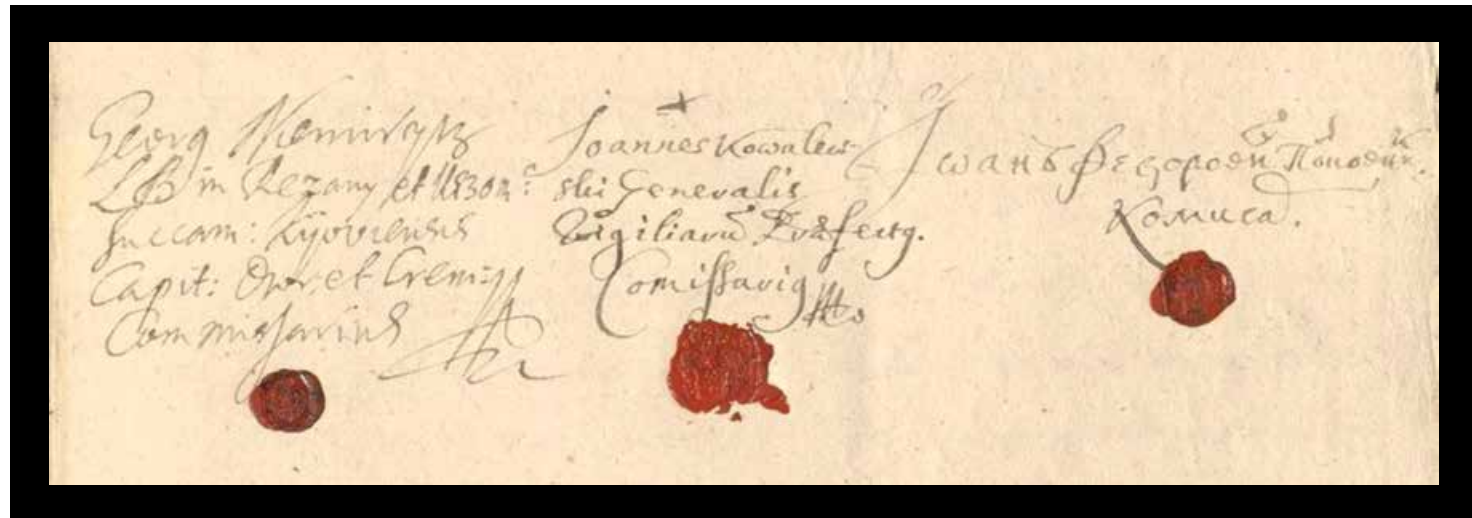 Georg Niemirycz
LB in Czerany et Uszom:
Succam: Kyoviensis
Capit: Owr: et Crem:
Commissarius
Joannes Kowalew
ski Generalis
Vigiliarũ Præfectꝯ.
Comissariꝯ
Іωанъ Федорович
Комиса.